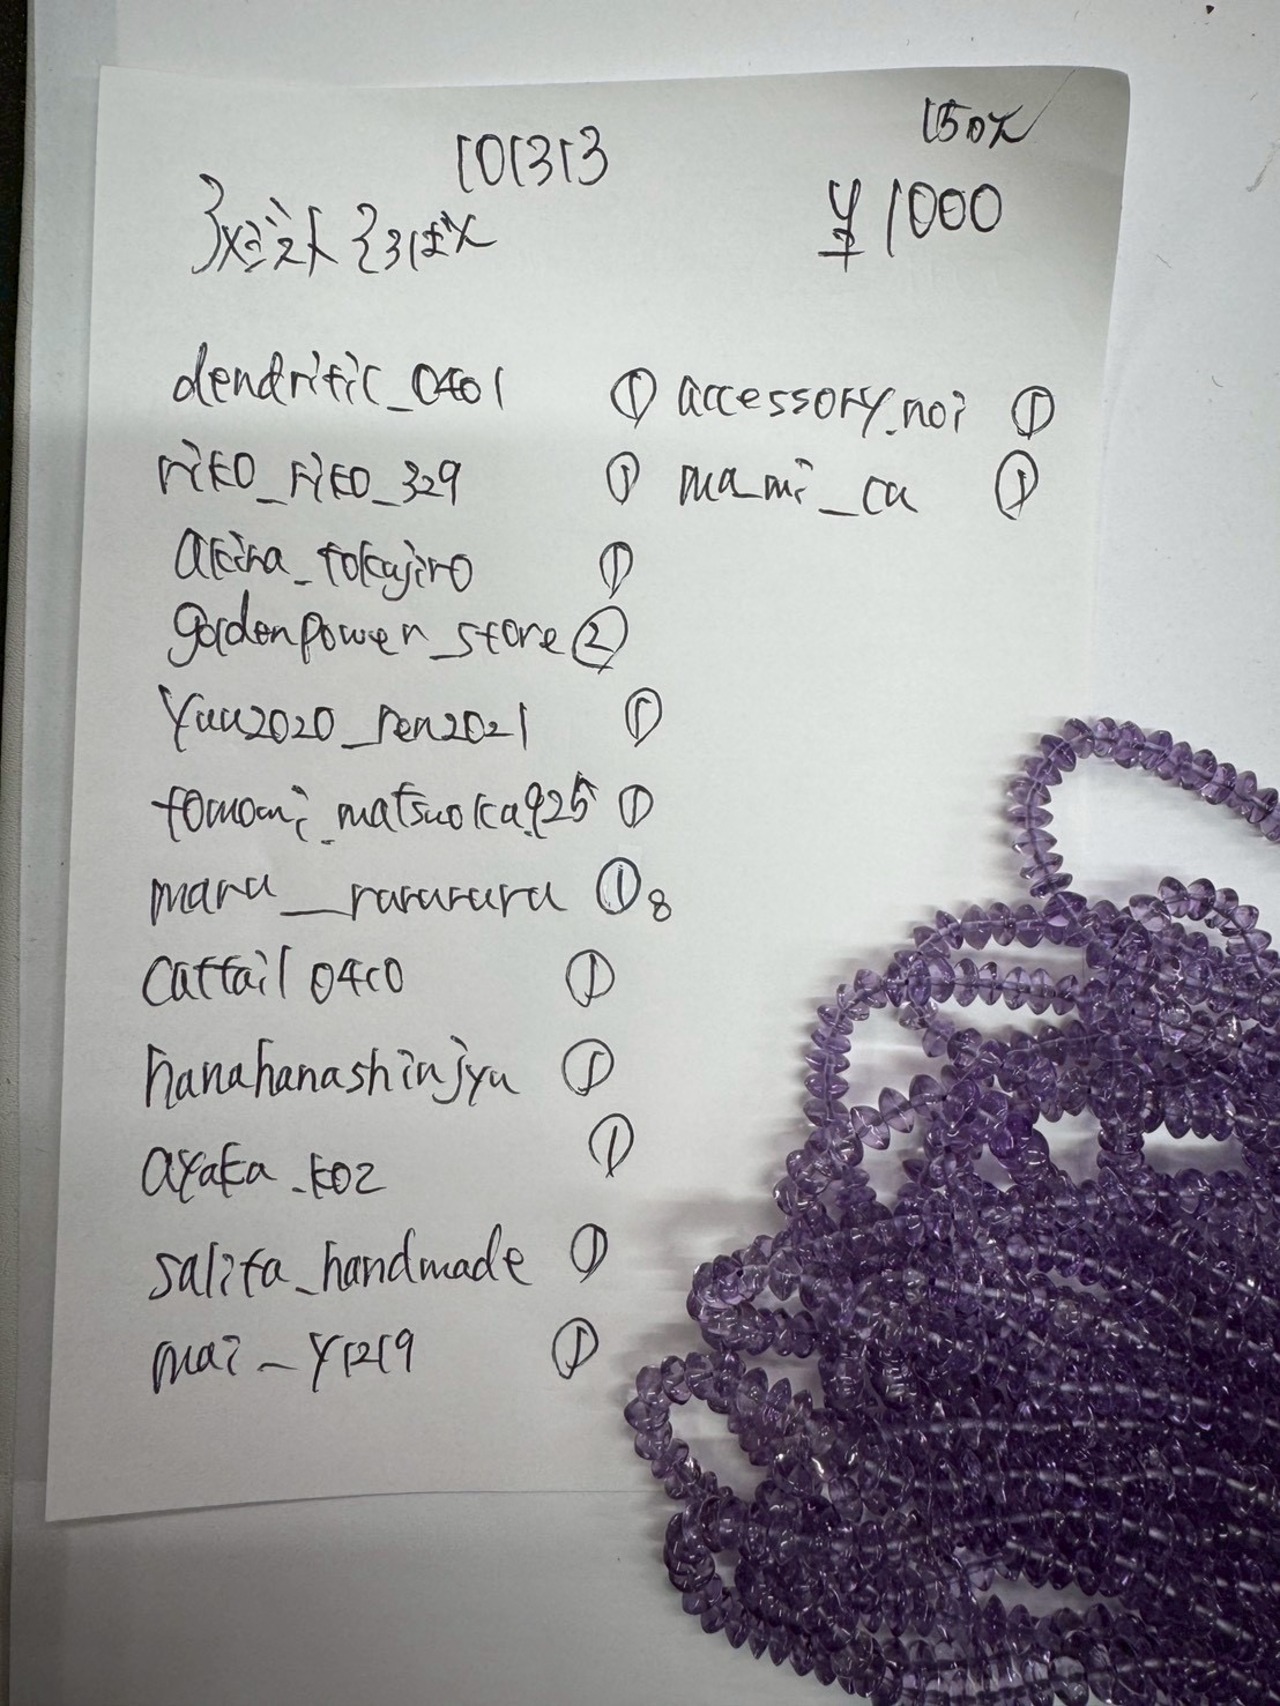 101313
150 %
¥1000
dendritic_0401 ① accessory_noi ①
riko_riko_329 ① ma_mi_ca ①
akira_tokajiro ①
goldenpower_store ②
yuu2020_ren2021 ①
tomomi_matsuoka925 ①
maru__rarurura ① 8
cattail0410 ①
hanahanashinjyu ①
ayaka_k02 ①
salita_handmade ①
mai_y1219 ①